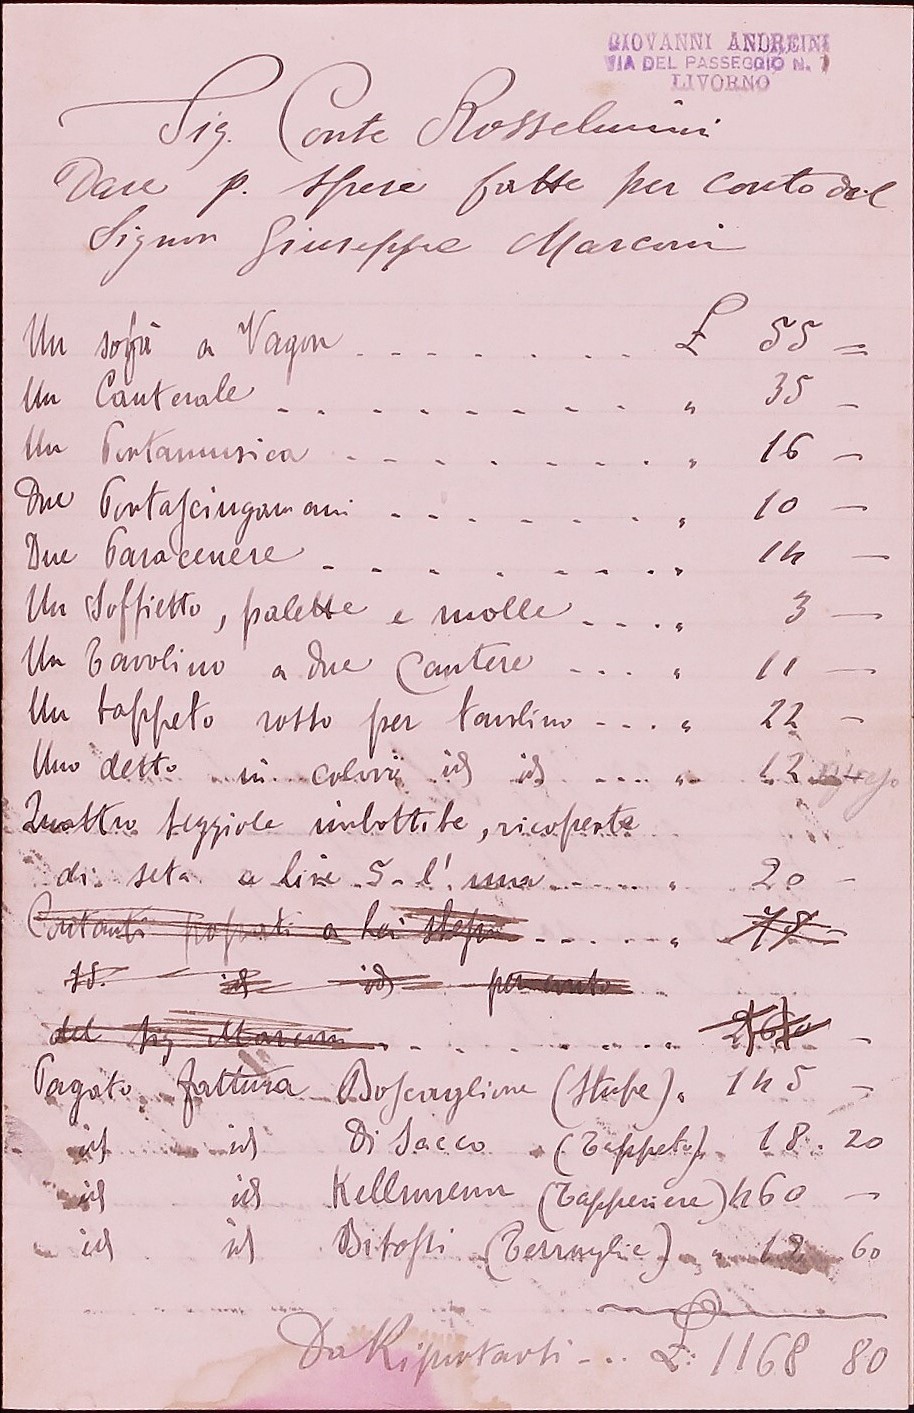 GIOVANNI ANDREINI
VIA DEL PASSEGGIO N. 1
LIVORNO
Sig. Conte Rosselmini
Dare p. spese fatte per conto del
Signor Giuseppe Marconi
Un sofà a Vagon - - - - - - - £ 55 =
Un Canterale - - - - - - - - - " 35 -
Un Portamusica - - - - - - - - " 16 -
Due Portasciugamani - - - - - - - " 10 -
Due Paracenere - - - - - - - - " 14 -
Un Soffietto, palette e molle - - - - " 3 -
Un Tavolino a due Cantere - - - - " 11 -
Un tappeto rosso per tavolino - - - - " 22 -
Uno detto in colori id id - - - - " 12
Quattro seggiole imbottite, ricoperte
di seta a lire 5 - l'una - - - - - " 20 -
Contanti a Lei stesso - - - - - " 75 -
Id. id id per conto
del Sig Marconi - - - - - - - - " 260 -
Pagato fattura Boscaglione (Stufe) " 145 -
id id Di Sacco (Tappeto) " 18. 20
id id (Tappeziere) 460 -
id id Bitossi (Terraglie) " 12 60
Da Riportarsi - - - £. 1168 80